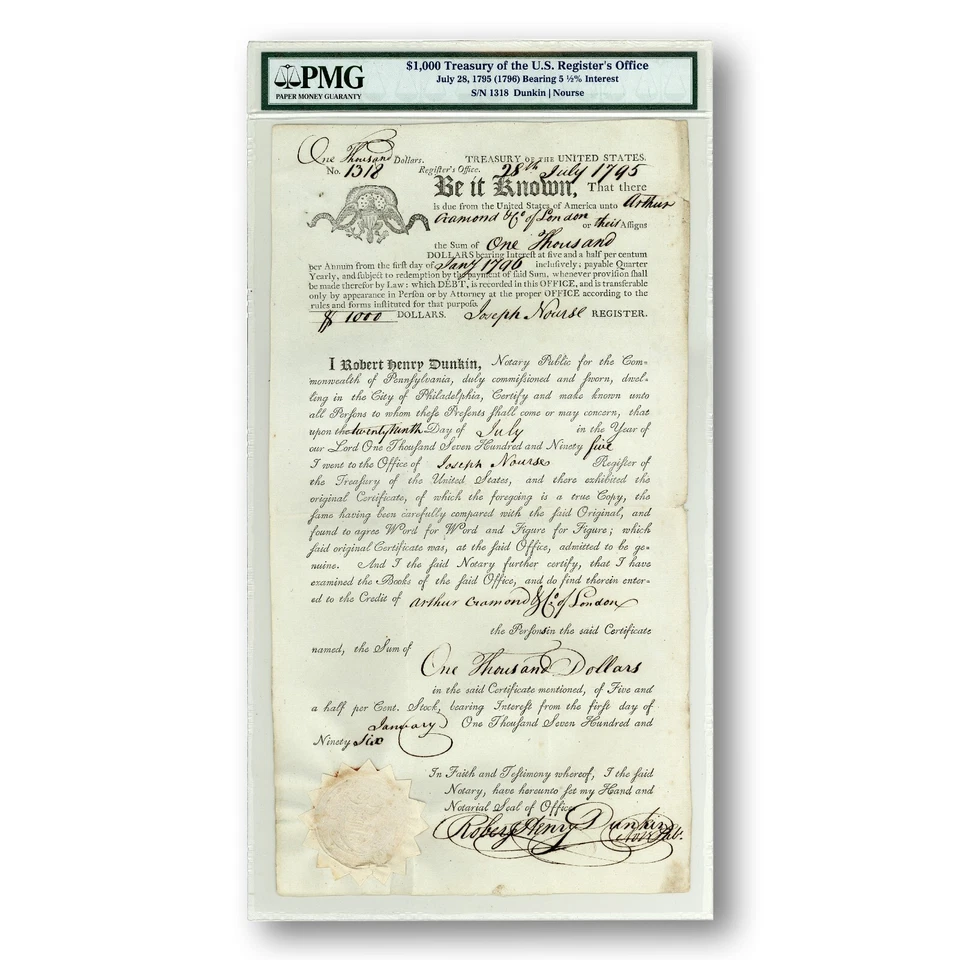 PMG
PAPER MONEY GUARANTY
$1,000 Treasury of the U.S. Register's Office
July 28, 1795 (1796) Bearing 5 ½% Interest
S/N 1318 Dunkin | Nourse
One Thousand Dollars. TREASURY OF THE UNITED STATES.
No. 1318 Register's Office. 28th July 1795
Be it Known, That there
is due from the United States of America unto Arthur
Cramond & Co of London or their Assigns
the Sum of One Thousand
DOLLARS bearing Interest at five and a half per centum
per Annum from the first day of Jany 1796 inclusively; payable Quarter
Yearly, and subject to redemption by the payment of said Sum, whenever provision shall
be made therefor by Law: which DEBT, is recorded in this OFFICE, and is transferable
only by appearance in Person or by Attorney at the proper OFFICE according to the
rules and forms instituted for that purpose.
$ 1000 DOLLARS. Joseph Nourse REGISTER.
I Robert Henry Dunkin, Notary Public for the Com-
monwealth of Pennsylvania, duly commissioned and sworn, dwel-
ling in the City of Philadelphia, Certify and make known unto
all Persons to whom these Presents shall come or may concern, that
upon the twenty ninth Day of July in the Year of
our Lord One Thousand Seven Hundred and Ninety five
I went to the Office of Joseph Nourse Register of
the Treasury of the United States, and there exhibited the
original Certificate, of which the foregoing is a true Copy, the
same having been carefully compared with the said Original, and
found to agree Word for Word and Figure for Figure; which
said original Certificate was, at the said Office, admitted to be ge-
nuine. And I the said Notary further certify, that I have
examined the Books of the said Office, and do find therein enter-
ed to the Credit of Arthur Cramond & Co of London
the Persons in the said Certificate
named, the Sum of
One Thousand Dollars
in the said Certificate mentioned, of Five and
a half per Cent. Stock, bearing Interest from the first day of
January One Thousand Seven Hundred and
Ninety Six
In Faith and Testimony whereof, I the said
Notary, have hereunto set my Hand and
Notarial Seal of Office
Robert Henry Dunkin